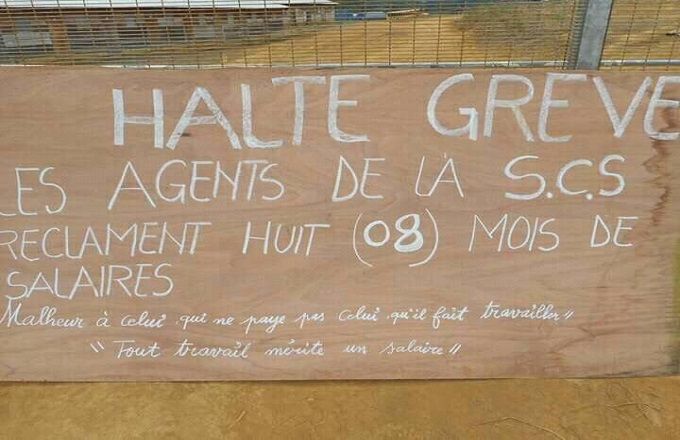 HALTE GREVE
LES AGENTS DE LA S.C.S
RECLAMENT HUIT (08) MOIS DE
SALAIRES
Malheur à celui qui ne paye pas celui qu'il fait travailler"
"Tout travail mérite un salaire"